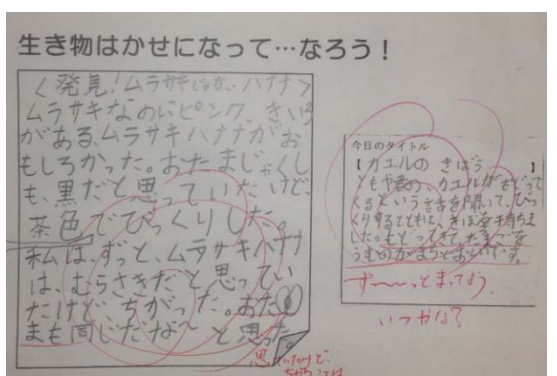 生き物はかせになって…なろう！
＜発見！ムラサキじゃないハナナ＞
ムラサキなのにピンク、きいろ
がある、ムラサキハナナがお
もしろかった。おたまじゃくし
も、黒だと思っていたけど、
茶色でびっくりした。
私は、ずっと、ムラサキハナナ
は、むらさきだと思ってい
たけど、ちがった。おた
まも同じだな〜と思った。
思いたけど
今日のタイトル
【カエルの きぼう 】
とも君の、カエルがもどって
くるということを聞いて、びっ
くりするとともに、きぼうを持ちま
した。もどってきて、たまごを
うむのがまちどおしいです。
ず〜〜っとまってよう
いつかな？